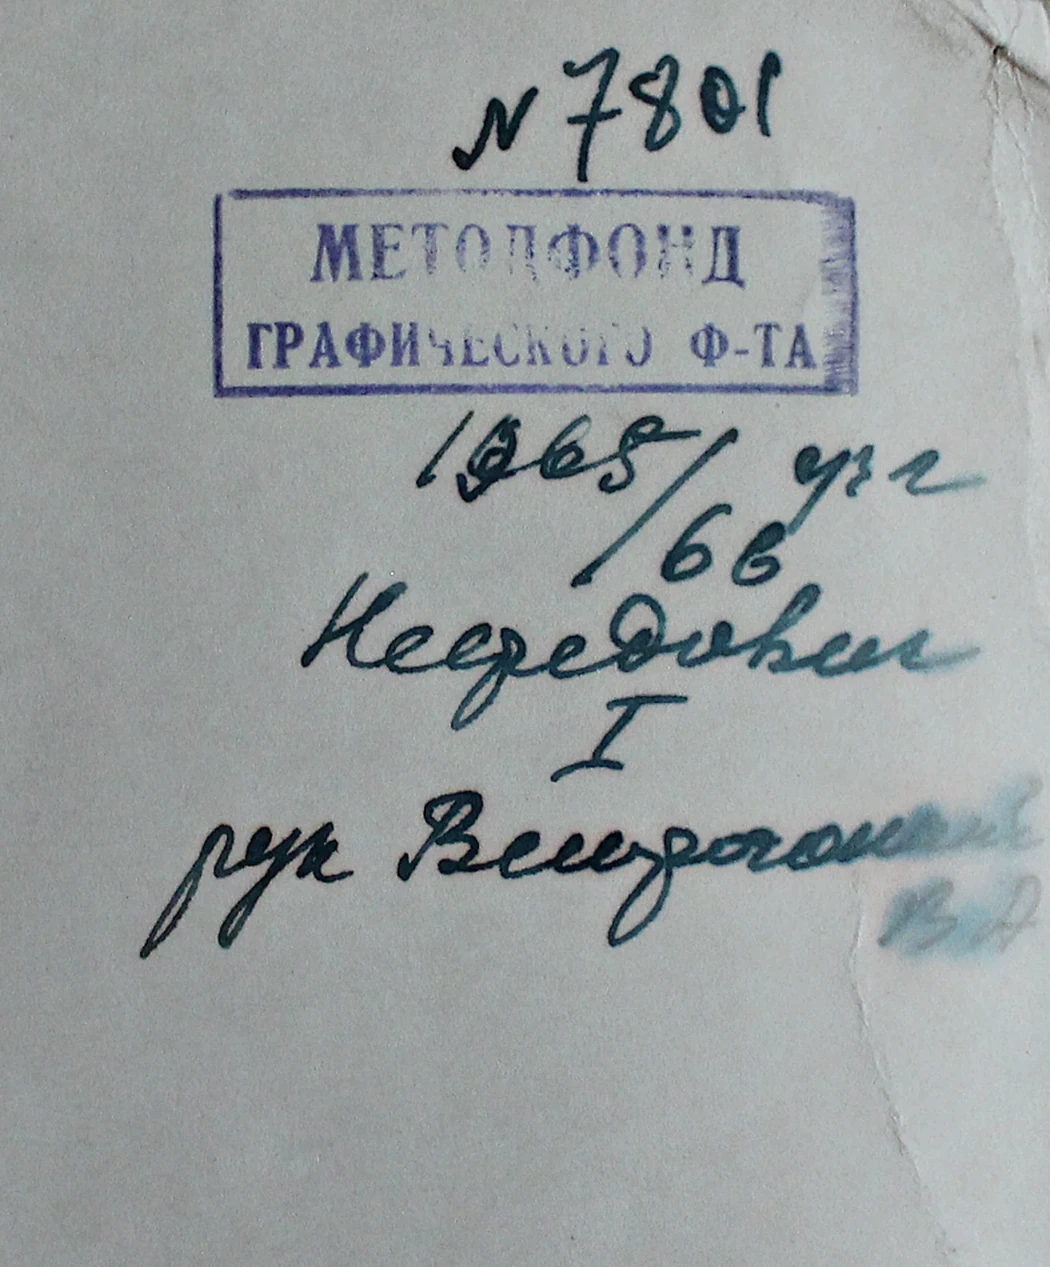 № 7801
МЕТОДФОНД
ГРАФИЧЕСКОГО Ф-ТА
1965/66 уч г
I
рук Ветрогонский
В А